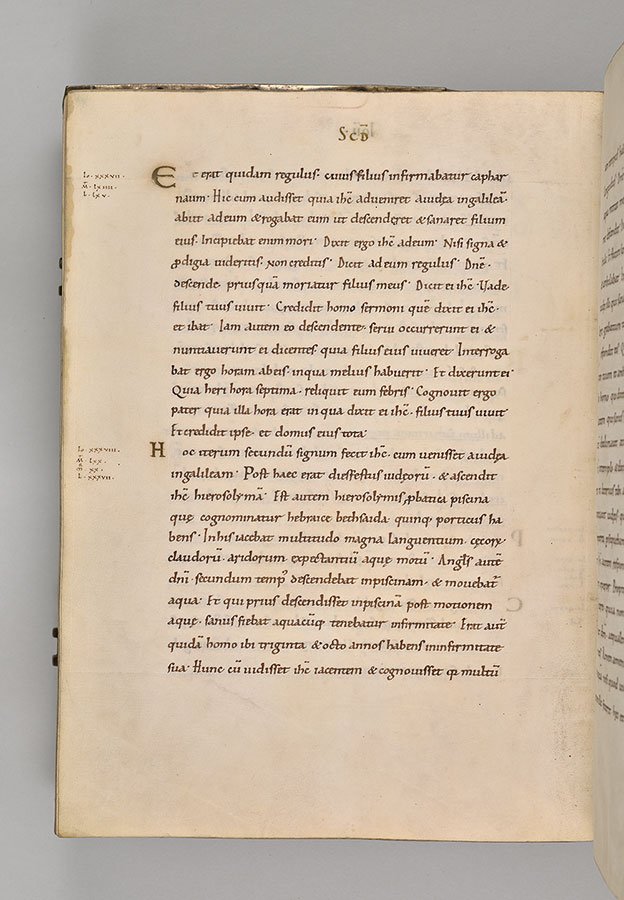 Scd̄
Io. xxxvii.
M̄. lxiiii.
L. lxv.
Et erat quidam regulus. cuius filius infirmabatur caphar
naum. Hic cum audisset quia ihc̄ adveniret a iudęa in galileā.
abiit ad eum & rogabat eum ut descenderet & sanaret filium
eius. Incipiebat enim mori. Dixit ergo ihc̄ ad eum. Nisi signa &
ꝓdigia uideritis. non creditis. Dicit ad eum regulus. Dnē.
descende. priusquā moriatur filius meus. Dicit ei ihc̄. Vade.
filius tuus uiuit. Credidit homo sermoni quē dixit ei ihc̄.
et ibat. Iam autem eo descendente. serui occurrerunt ei &
nuntiauerunt ei dicentes. quia filius eius uiueret. Interroga
bat ergo horam ab eis. in qua melius habuerit. Et dixerunt ei.
Quia heri hora septima. reliquit eum febris. Cognouit ergo
pater quia illa hora erat in qua dixit ei ihc̄. filius tuus uiuit.
Et credidit ipse. et domus eius tota.
Io. xxxviii.
L. xxxvii.
Hoc iterum secundū signum fecit ihc̄. cum uenisset a iudęa
in galileam. Post haec erat dies festus iudęorū. & ascendit
ihc̄ hierosolymā. Est autem hierosolymis ꝓbatica piscina
quę cognominatur hebraice bethsaida. quinqꝫ porticus ha
bens. In his iacebat multitudo magna languentium. cęcorū.
claudorū. aridorum. expectantiū aquę motū. Angls̄ autē
dnī. secundum temp᾽ descendebat in piscinam. & mouebat᾽
aqua. Et qui prius descendisset in piscinā post motionem
aquę. sanus fiebat a quacūqꝫ tenebatur infirmitate. Erat autē
quidā homo ibi triginta & octo annos habens in infirmitate
sua. Hunc cū uidisset ihc̄ iacentem & cognouisset qꝛ multū